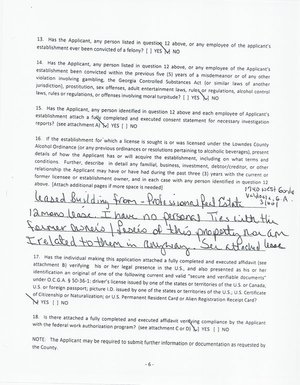 13. Has the Applicant, any person listed in question 12 above, or any employee of the Applicant's
establishment ever been convicted of a felony? [ ] YES [✓] NO
14. Has the Applicant, any person listed in question 12 above, or any employee of the Applicant's
establishment been convicted within the previous five (5) years of a misdemeanor or of any other
violation involving gambling, the Georgia Controlled Substances Act (or similar laws of another
jurisdiction), prostitution, sex offenses, adult entertainment laws, rules or regulations, alcohol control
laws, rules or regulations, or offenses involving moral turpitude? [ ] YES [✓] NO
15. Has the Applicant, any person identified in question 12 above and each employee of Applicant's
establishment attach a fully completed and executed consent statement for necessary investigation
reports? (see attachment A) [✓] YES [ ] NO
16. If the establishment for which a license is sought is or was licensed under the Lowndes County
Alcohol Ordinance (or any previous ordinances or resolutions pertaining to alcoholic beverages), present
details of how the Applicant has or will acquire the establishment, including on what terms and
conditions. Further, describe in detail any familial, business, investment, debtor/creditor, or other
relationship the Applicant may have or have had during the past three (3) years with the current or
former licensee or establishment owner, and in each case with any person identified in question 12
above. [Attach additional pages if more space is needed]
1740 West Gordon
Valdosta, G.A.
31601
leased Building from - Professional Real Estate
12 mons lease I have no personal Ties with the
former owners / lessees of this property, nor am
I related to them in anyway. See attached lease
17. Has the individual making this application attached a fully completed and executed affidavit (see
attachment B) verifying his or her legal presence in the U.S., and also presented as his or her
identification an original of one of the following current and valid "secure and verifiable documents"
under O.C.G.A. § 50-36-1: driver's license issued by one of the states or territories of the U.S. or Canada,
U.S. or foreign passport; picture I.D. issued by one of the states or territories of the U.S., U.S. Certificate
of Citizenship or Naturalization; or U.S. Permanent Resident Card or Alien Registration Receipt Card?
[✓] YES [ ] NO
18. Is there attached a fully completed and executed affidavit verifying compliance by the Applicant
with the federal work authorization program? (see attachment C or D) [✓] YES [ ] NO
NOTE: The Applicant may be required to submit further information or documentation as requested by
the County.
- 6 -